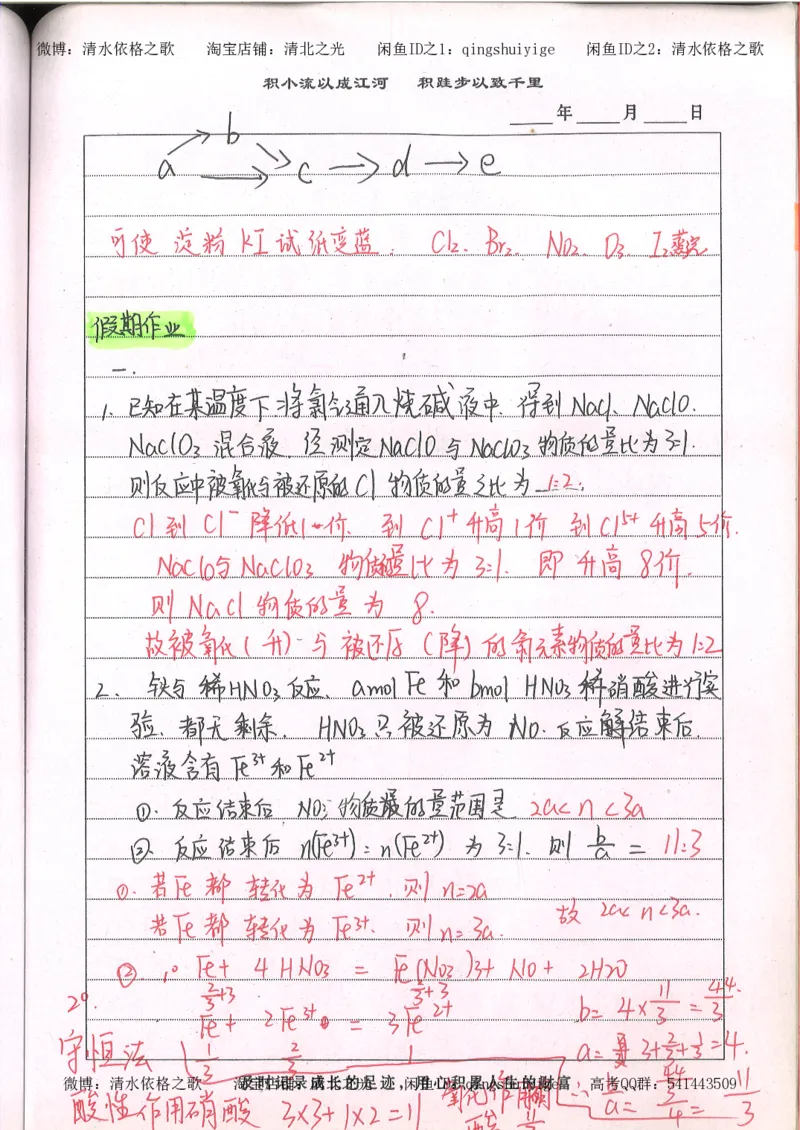 微博：清水依格之歌 淘宝店铺：清北之光 闲鱼ID之1：qingshuiyige 闲鱼ID之2：清水依格之歌
积小流以成江河 积跬步以致千里
年 月 日
b
a → c → d → e
可使淀粉KI试纸变蓝. Cl₂、Br₂、NO₂、O₃ I₂蒸气
假期作业
一.
1. 已知在某温度下将氯气通入烧碱液中. 得到NaCl、NaClO.
NaClO₃混合液. 经测定NaClO与NaClO₃物质的量比为3:1.
则反应中被氧化与被还原的Cl物质的量之比为 1:2.
Cl到Cl⁻降低1价. 到Cl⁺升高1价 到Cl⁵⁺升高5价.
NaClO与NaClO₃物质的量比为3:1. 即升高8价.
则NaCl物质的量为8.
故被氧化(升)与被还原(降)的氯元素物质的量比为1:2
2. 铁与稀HNO₃反应. amol Fe和bmol HNO₃稀硝酸进行实
验. 都无剩余. HNO₃只被还原为NO. 反应结束后.
溶液含有Fe³⁺和Fe²⁺
①. 反应结束后 NO₃⁻物质的量范围是 2a<n<3a
② 反应结束后 n(Fe³⁺):n(Fe²⁺) 为3:1. 则 b/a = 11:3
①. 若Fe都转化为Fe²⁺. 则n=2a
故 2a<n<3a.
若Fe都转化为Fe³⁺. 则n=3a.
②. 1° Fe + 4HNO₃ = Fe(NO₃)₃ + NO + 2H₂O
2/3+3 2/3+3
b = 4×11/3 = 44/3.
2° Fe + 2Fe³⁺ = 3Fe²⁺
1/3 2/3 1
a = 3+2/3+1/3 = 4.
守恒法
及时记录成长的足迹，用心积累人生的财富
微博：清水依格之歌 淘宝店铺：清北之光 闲鱼ID之1：qingshuiyige 高考QQ群：541443509
酸性作用硝酸 3×3+1×2=11 氧化作用 b/a = 44/3 / 4 = 11/3